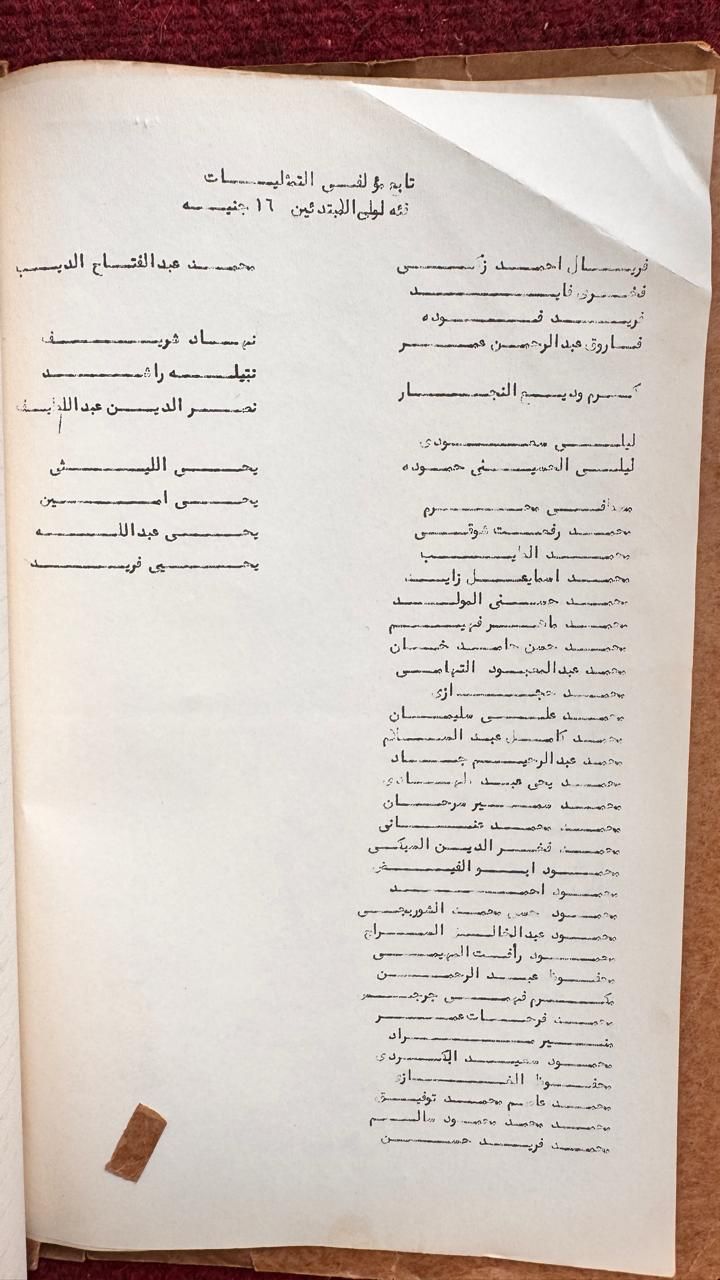 تابع مؤلفى التمثليات
فئه اولى المبتدئين ١٦ جنيه
فريال احمد زكى
فخرى فايد
فريد فوده
فاروق عبدالرحمن عمر
كرم وديع النجار
ليلى سعودى
ليلى الحسينى حموده
محرم
محمد رفعت شوقى
محمد
محمد اسمايعل زايد
محمد حسنى المولد
محمد ماهر فهيم
محمد حسن حامد خان
محمد عبدالمعبود التهامى
محمد حجازى
محمد على سليمان
محمد كامل عبد السلام
محمد عبدالرحيم جاد
محمد يحى عبد الهادى
محمد سمير سرحان
محمد محمد عنانى
محمد فخر الدين السبكى
محمود ابو الفيض
محمود احمد
محمود حسن محمد الشوربجى
محمود عبدالخالق السراج
محمود رأفت
محفوظ عبد الرحمن
مكرم فهمى جرجس
محمد فرحات عمر
منير مراد
محمود سعيد الكردى
محفوظ الغازى
محمد عاصم محمد توفيق
محمد محمد محمود سالم
محمد فريد حسن
محمد عبدالفتاح الديب
نهاد شريف
نتيله راشد
نصر الدين عبداللطيف
يحى الليثى
يحى امين
يحى عبدالله
يحيى فريد